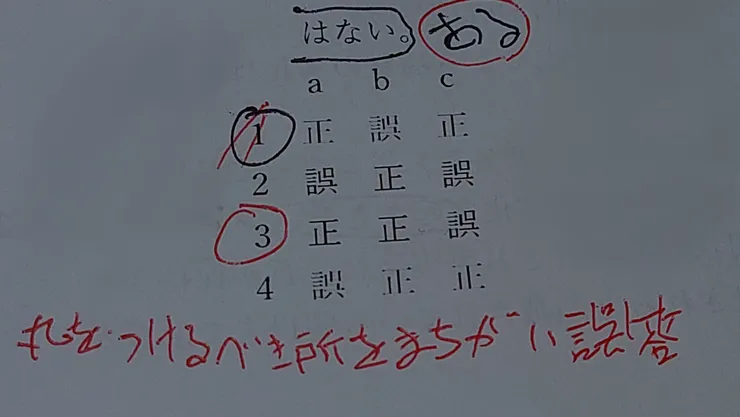 はない。 ある
a b c
1 正 誤 正
2 誤 正 誤
3 正 正 誤
4 誤 正 正
丸をつけるべき所をまちがい誤答